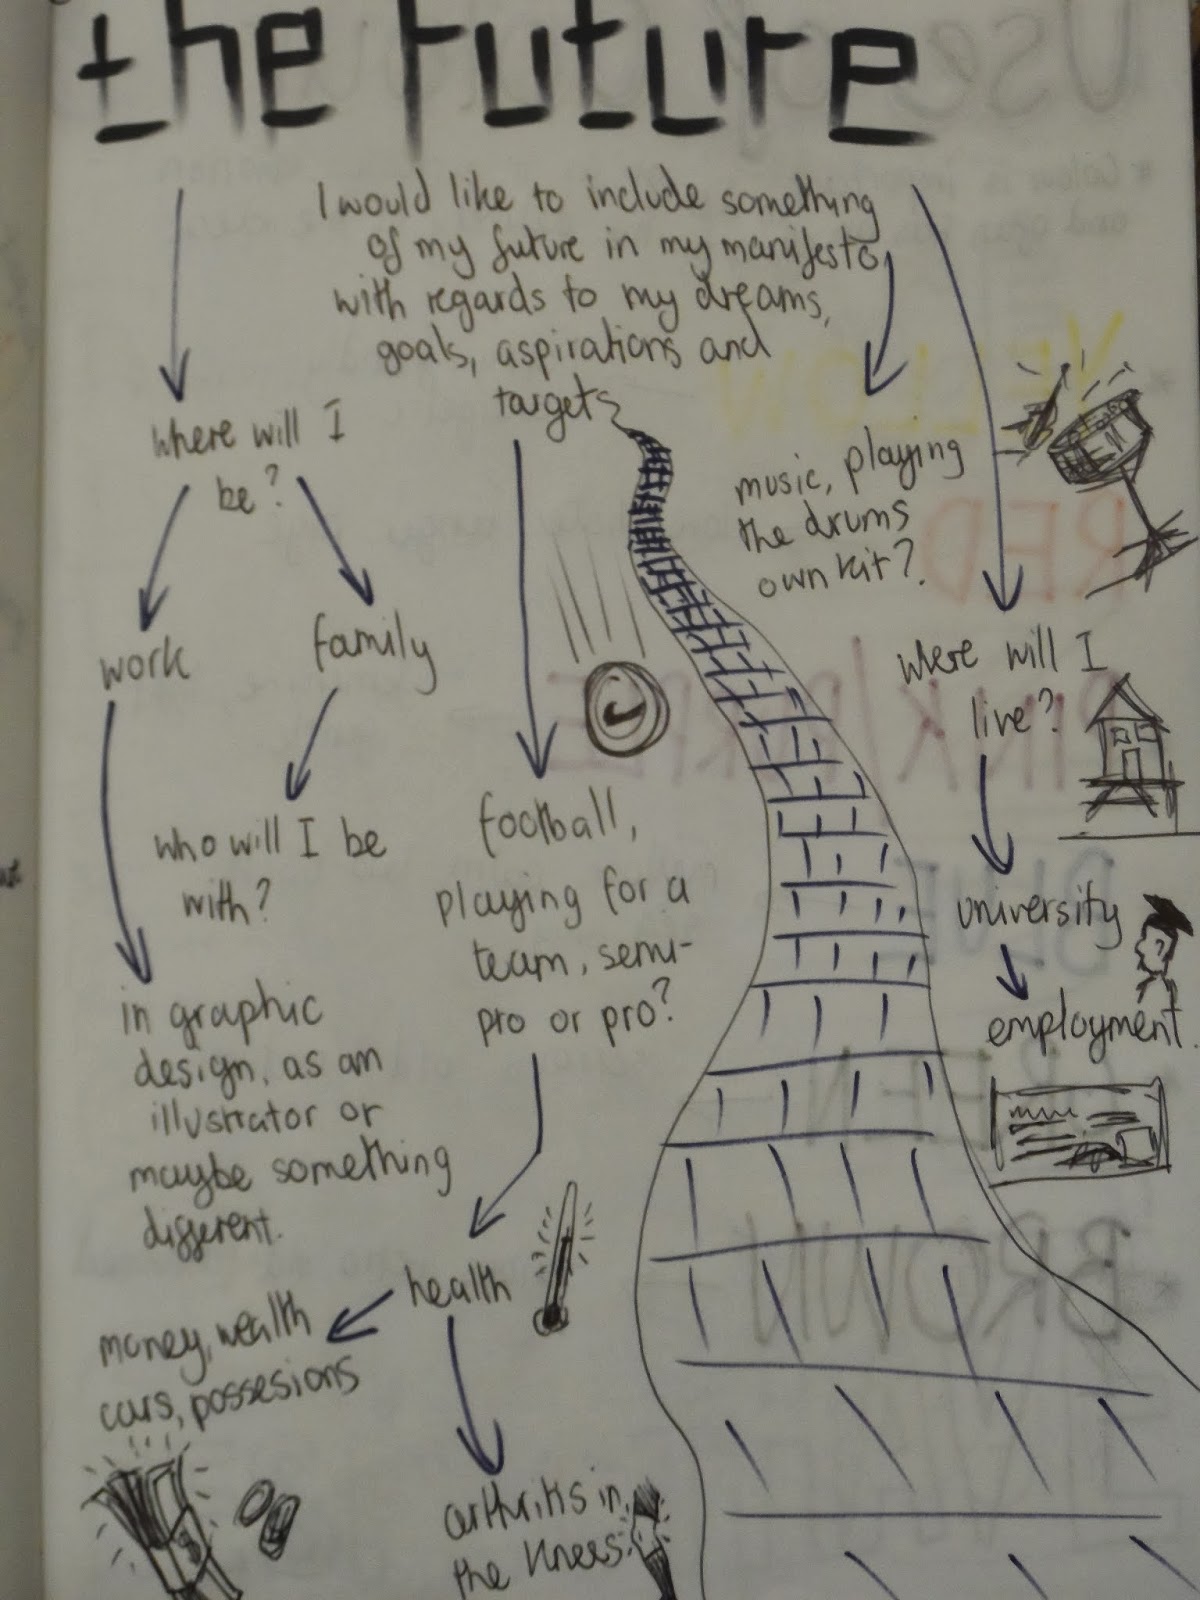 the future
I would like to include something
of my future in my manifesto,
with regards to my dreams,
goals, aspirations and
targets
where will I
be?
work
family
who will I be
with?
in graphic
design, as an
illustrator or
maybe something
different.
football,
playing for a
team, semi-
pro or pro?
health
money, wealth
cars, possesions
arthritis in
the knees.
music, playing
the drums
own kit?
where will I
live?
university
employment.
YELLOW
RED
PINK/PURPLE
BLUE
GREEN
BROWN